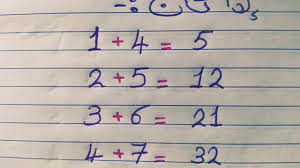 1 + 4 = 5
2 + 5 = 12
3 + 6 = 21
4 + 7 = 32